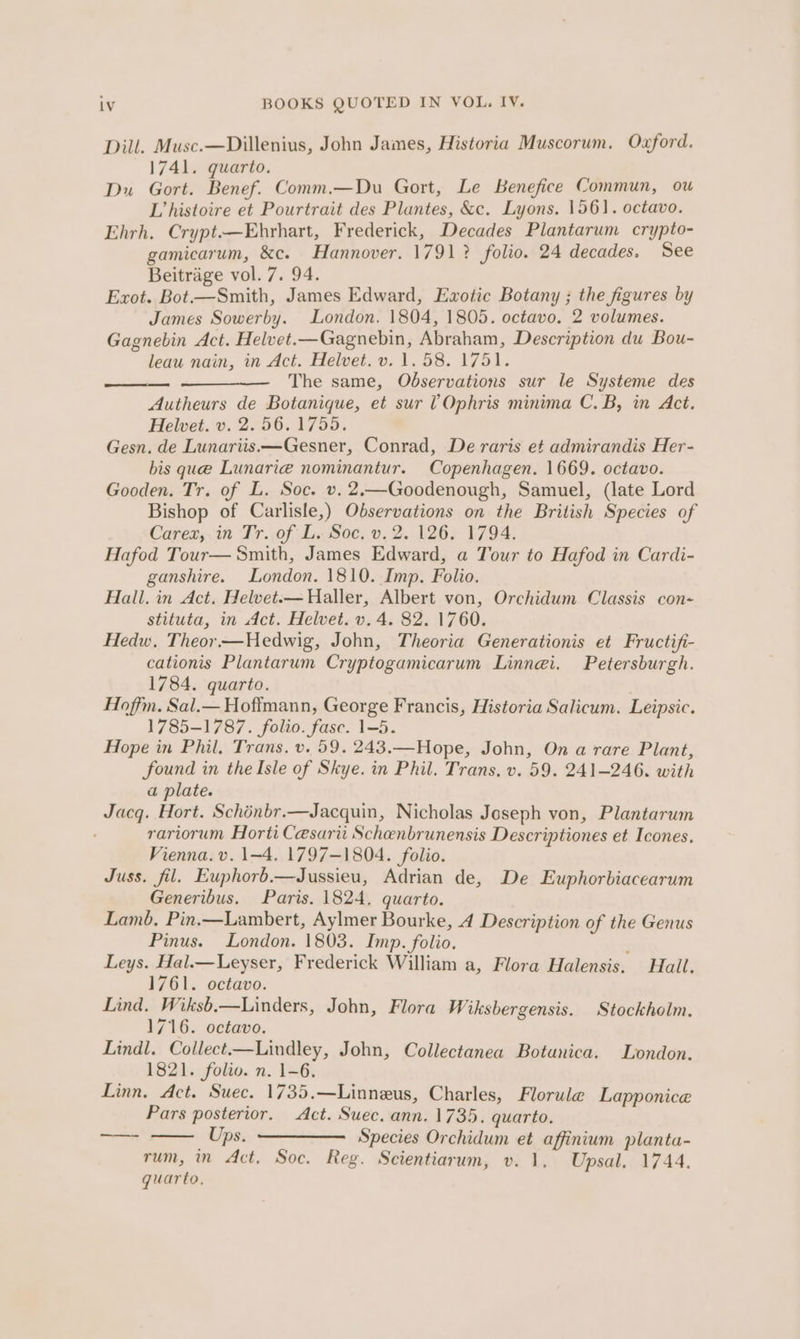 iv BOOKS QUOTED IN VOL. IV.
Dill. Musc.—Dillenius, John James, Historia Muscorum. Oxford.
1741. quarto.
Du Gort. Benef. Comm.—Du Gort, Le Benefice Commun, ou
L'histoire et Pourtrait des Plantes, &c. Lyons. 1561. octavo.
Ehrh. Crypt.—Ehrhart, Frederick, Decades Plantarum crypto-
gamicarum, &c. Hannover. 1791? folio. 24 decades. See
Beiträge vol. 7. 94.
Exot. Bot.—Smith, James Edward, Exotic Botany; the figures by
James Sowerby. London. 1804, 1805. octavo. 2 volumes.
Gagnebin Act. Helvet.—Gagnebin, Abraham, Description du Bou-
leau nain, in Act. Helvet. v. 1. 58. 1751.
——— ——— The same, Observations sur le Systeme des
Autheurs de Botanique, et sur l'Ophris minima C. B, in Act.
Helvet. v. 2. 56. 1755.
Gesn. de Lunariis.—Gesner, Conrad, De raris et admirandis Her-
bis quæ Lunariæ nominantur. Copenhagen. 1669. octavo.
Gooden. Tr. of L. Soc. v. 2.—Goodenough, Samuel, (late Lord
Bishop of Carlisle,) Observations on the British Species of
Carex, in Tr. of L. Soc. v. 2. 126. 1794.
Hafod Tour—Smith, James Edward, a Tour to Hafod in Cardi-
ganshire. London. 1810. Imp. Folio.
Hall. in Act. Helvet.—Haller, Albert von, Orchidum Classis con-
stituta, in Act. Helvet. v. 4. 82. 1760.
Hedw. Theor.—Hedwig, John, Theoria Generationis et Fructifi-
cationis Plantarum Cryptogamicarum Linnæi. Petersburgh.
1784. quarto.
Hoffm. Sal.—Hoffmann, George Francis, Historia Salicum. Leipsic.
1785-1787. folio. fasc. 1-5.
Hope in Phil. Trans. v. 59. 243.—Hope, John, On a rare Plant,
found in the Isle of Skye. in Phil. Trans. v. 59. 241-246. with
a plate.
Jacq. Hort. Schönbr.—Jacquin, Nicholas Joseph von, Plantarum
rariorum Horti Cæsarii Schœnbrunensis Descriptiones et Icones.
Vienna. v. 1-4. 1797-1804. folio.
Juss. fil. Euphorb.—Jussieu, Adrian de, De Euphorbiacearum
Generibus. Paris. 1824. quarto.
Lamb. Pin.—Lambert, Aylmer Bourke, A Description of the Genus
Pinus. London. 1803. Imp. folio.
Leys. Hal.—Leyser, Frederick William a, Flora Halensis. Hall.
1761. octavo.
Lind. Wiksb.—Linders, John, Flora Wiksbergensis. Stockholm.
1716. octavo.
Lindl. Collect.—Lindley, John, Collectanea Botanica. London.
1821. folio. n. 1-6.
Linn. Act. Suec. 1735.—Linnæus, Charles, Florulæ Lapponicæ
Pars posterior. Act. Suec. ann. 1735. quarto.
—— —— Ups. ——— Species Orchidum et affinium planta-
rum, in Act. Soc. Reg. Scientiarum, v. 1. Upsal. 1744.
quarto.